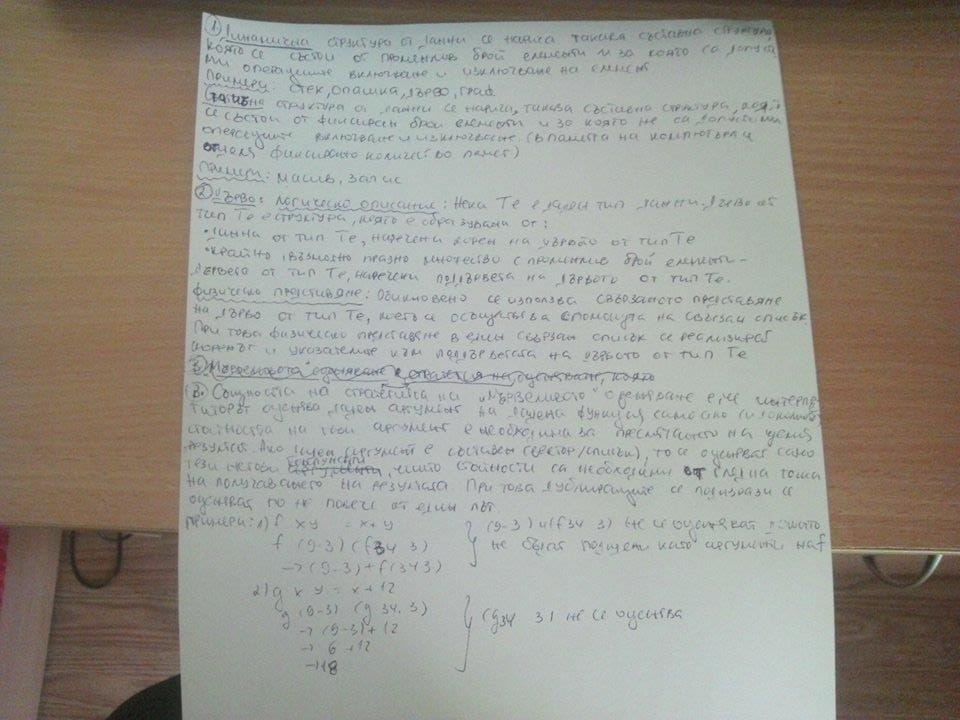 ① Динамична структура от данни се нарича такава съставна структура,
която се състои от променлив брой елементи и за която са допусти
ми операциите включване и изключване на елемент
Примери: стек, опашка, дърво, граф.
Статична структура от данни се нарича, такава съставна структура, която
се състои от фиксиран брой елементи и за която не са допустими
операциите включване и изключване. (в паметта на компютъра се
отделя фиксирано количество памет)
Примери: масив, запис
② Дърво: Логическо описание: Нека Te е даден тип данни, дърво от
тип Te е структура, която е образувана от:
• данна от тип Te, наречена корен на дървото от тип Te
• крайно, възможно празно множество с променлив брой елементи –
дървета от тип Te, наречени поддървета на дървото от тип Te.
физическо представяне: Обикновено се използва свързаното представяне
на дърво от тип Te, което се осъществява с помощта на свързан списък.
При това физическо представяне в един свързан списък се реализират
коренът и указателите към поддърветата на дървото от тип Te
③ Същността на стратегията на "мързеливото" оценяване е, че интерпре
таторът оценява даден аргумент на дадена функция само ако (и доколкото)
стойността на този аргумент е необходима за пресмятането на целия
резултат. Ако даден аргумент е съставен (вектор/списък), то се оценяват само
тези негови компоненти, чиито стойности са необходими от гледна точка
на получаването на резултата. При това дублиращите се подизрази се
оценяват по не повече от един път.
Примери: 1) f x y = x + y
f (9-3) (f 34 3)
→ (9-3) + f(34 3)
(9-3) и (f 34 3) не се оценяват, защото
не бъдат подадени като аргументи на f
2) g x y = x + 12
g (9-3) (g 34 3)
→ (9-3) + 12
→ 6 + 12
→ 18
(g 34 3) не се оценява